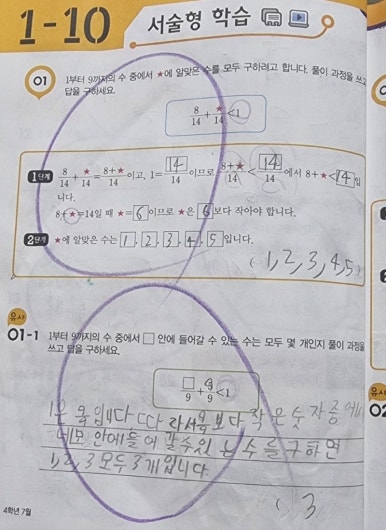 1-10 서술형 학습
01 1부터 9까지의 수 중에서 ★에 알맞은 수를 모두 구하려고 합니다. 풀이 과정을 쓰고
답을 구하세요.
8/14 + ★/14 < 1
1단계 8/14 + ★/14 = 8+★/14 이고, 1= 14/14 이므로 8+★/14 < 14/14 에서 8+★< 14 입
니다.
8+★=14일 때 ★= 6 이므로 ★은 6 보다 작아야 합니다.
2단계 ★에 알맞은 수는 1, 2, 3, 4, 5 입니다.
( 1, 2, 3, 4, 5
유사
01-1 1부터 9까지의 수 중에서 □ 안에 들어갈 수 있는 수는 모두 몇 개인지 풀이 과정을
쓰고 답을 구하세요.
□/9 + /9 < 1
보다 작은 숫자중에
네모 안에 들어 갈 수 있는 수를 구하면
1, 2, 3 모두 3개 입니다.
( 3
4학년 7월
유사
02